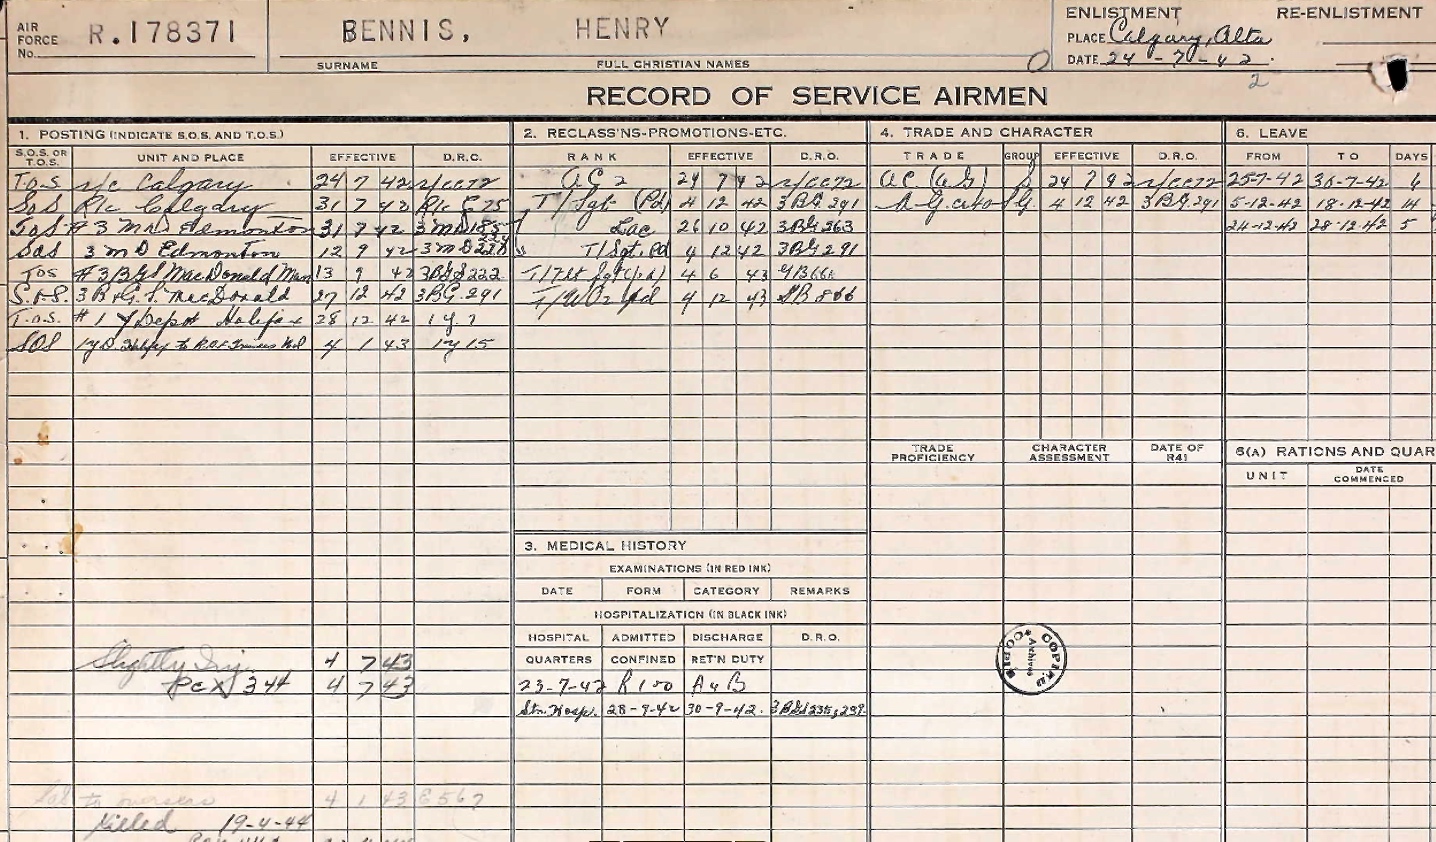 AIR FORCE No. R.178371
BENNIS, HENRY
SURNAME FULL CHRISTIAN NAMES
ENLISTMENT RE-ENLISTMENT
PLACE Calgary, Alta
DATE 24-7-42
2
RECORD OF SERVICE AIRMEN
1. POSTING (INDICATE S.O.S. AND T.O.S.)
S.O.S. OR T.O.S. UNIT AND PLACE EFFECTIVE D.R.O.
T.O.S Calgary 24 7 42
SOS R/c Calgary 31 7 42 R/c E 75
ToS # 3 Edmonton 31 7 42 3 MD 185
SoS 3 m D Edmonton 12 9 42 3 m D
Tos #3 B&GS MacDonald Man 13 9 42 3BGS 222
S.O.S. 3 B&G.S. MacDonald 27 12 42 3BG. 291
T.O.S. # 1 Y Depot Halifax 28 12 42 1 Y. 1
SOS 1 Y D. Halifax to R.A.F. Trainees Pool 4 1 43 1Y 15
Slightly Inj. 4 7 43
344 4 7 43
SoS to overseas 4 1 43 E 567
Killed 19-4-44
2. RECLASS'NS-PROMOTIONS-ETC.
RANK EFFECTIVE D.R.O.
AC 2 24 7 42
T/Sgt (Pd) 4 12 42 3BG 291
Lac 26 10 42 3BG 263
T/Sgt. Pd 4 12 42 3BG 291
T/Flt Sgt (pd) 4 6 43
T/WO2 pd 4 12 43 866
3. MEDICAL HISTORY
EXAMINATIONS (IN RED INK)
DATE FORM CATEGORY REMARKS
HOSPITALIZATION (IN BLACK INK)
HOSPITAL ADMITTED DISCHARGE D.R.O.
QUARTERS CONFINED RET'N DUTY
23-7-42 R100 A4B
Stn. Hosp. 28-9-42 30-9-42. 3BGS 235, 239.
4. TRADE AND CHARACTER
TRADE GROUP EFFECTIVE D.R.O.
AC (AG) S 24 7 42
A.G. G 4 12 42 3BG 291
TRADE PROFICIENCY CHARACTER ASSESSMENT DATE OF R41
COPIED
Archives
6. LEAVE
FROM TO DAYS
25-7-42 30-7-42 6
5-12-42 18-12-42 14
24-12-42 28-12-42 5
6(A) RATIONS AND QUAR
UNIT DATE COMMENCED